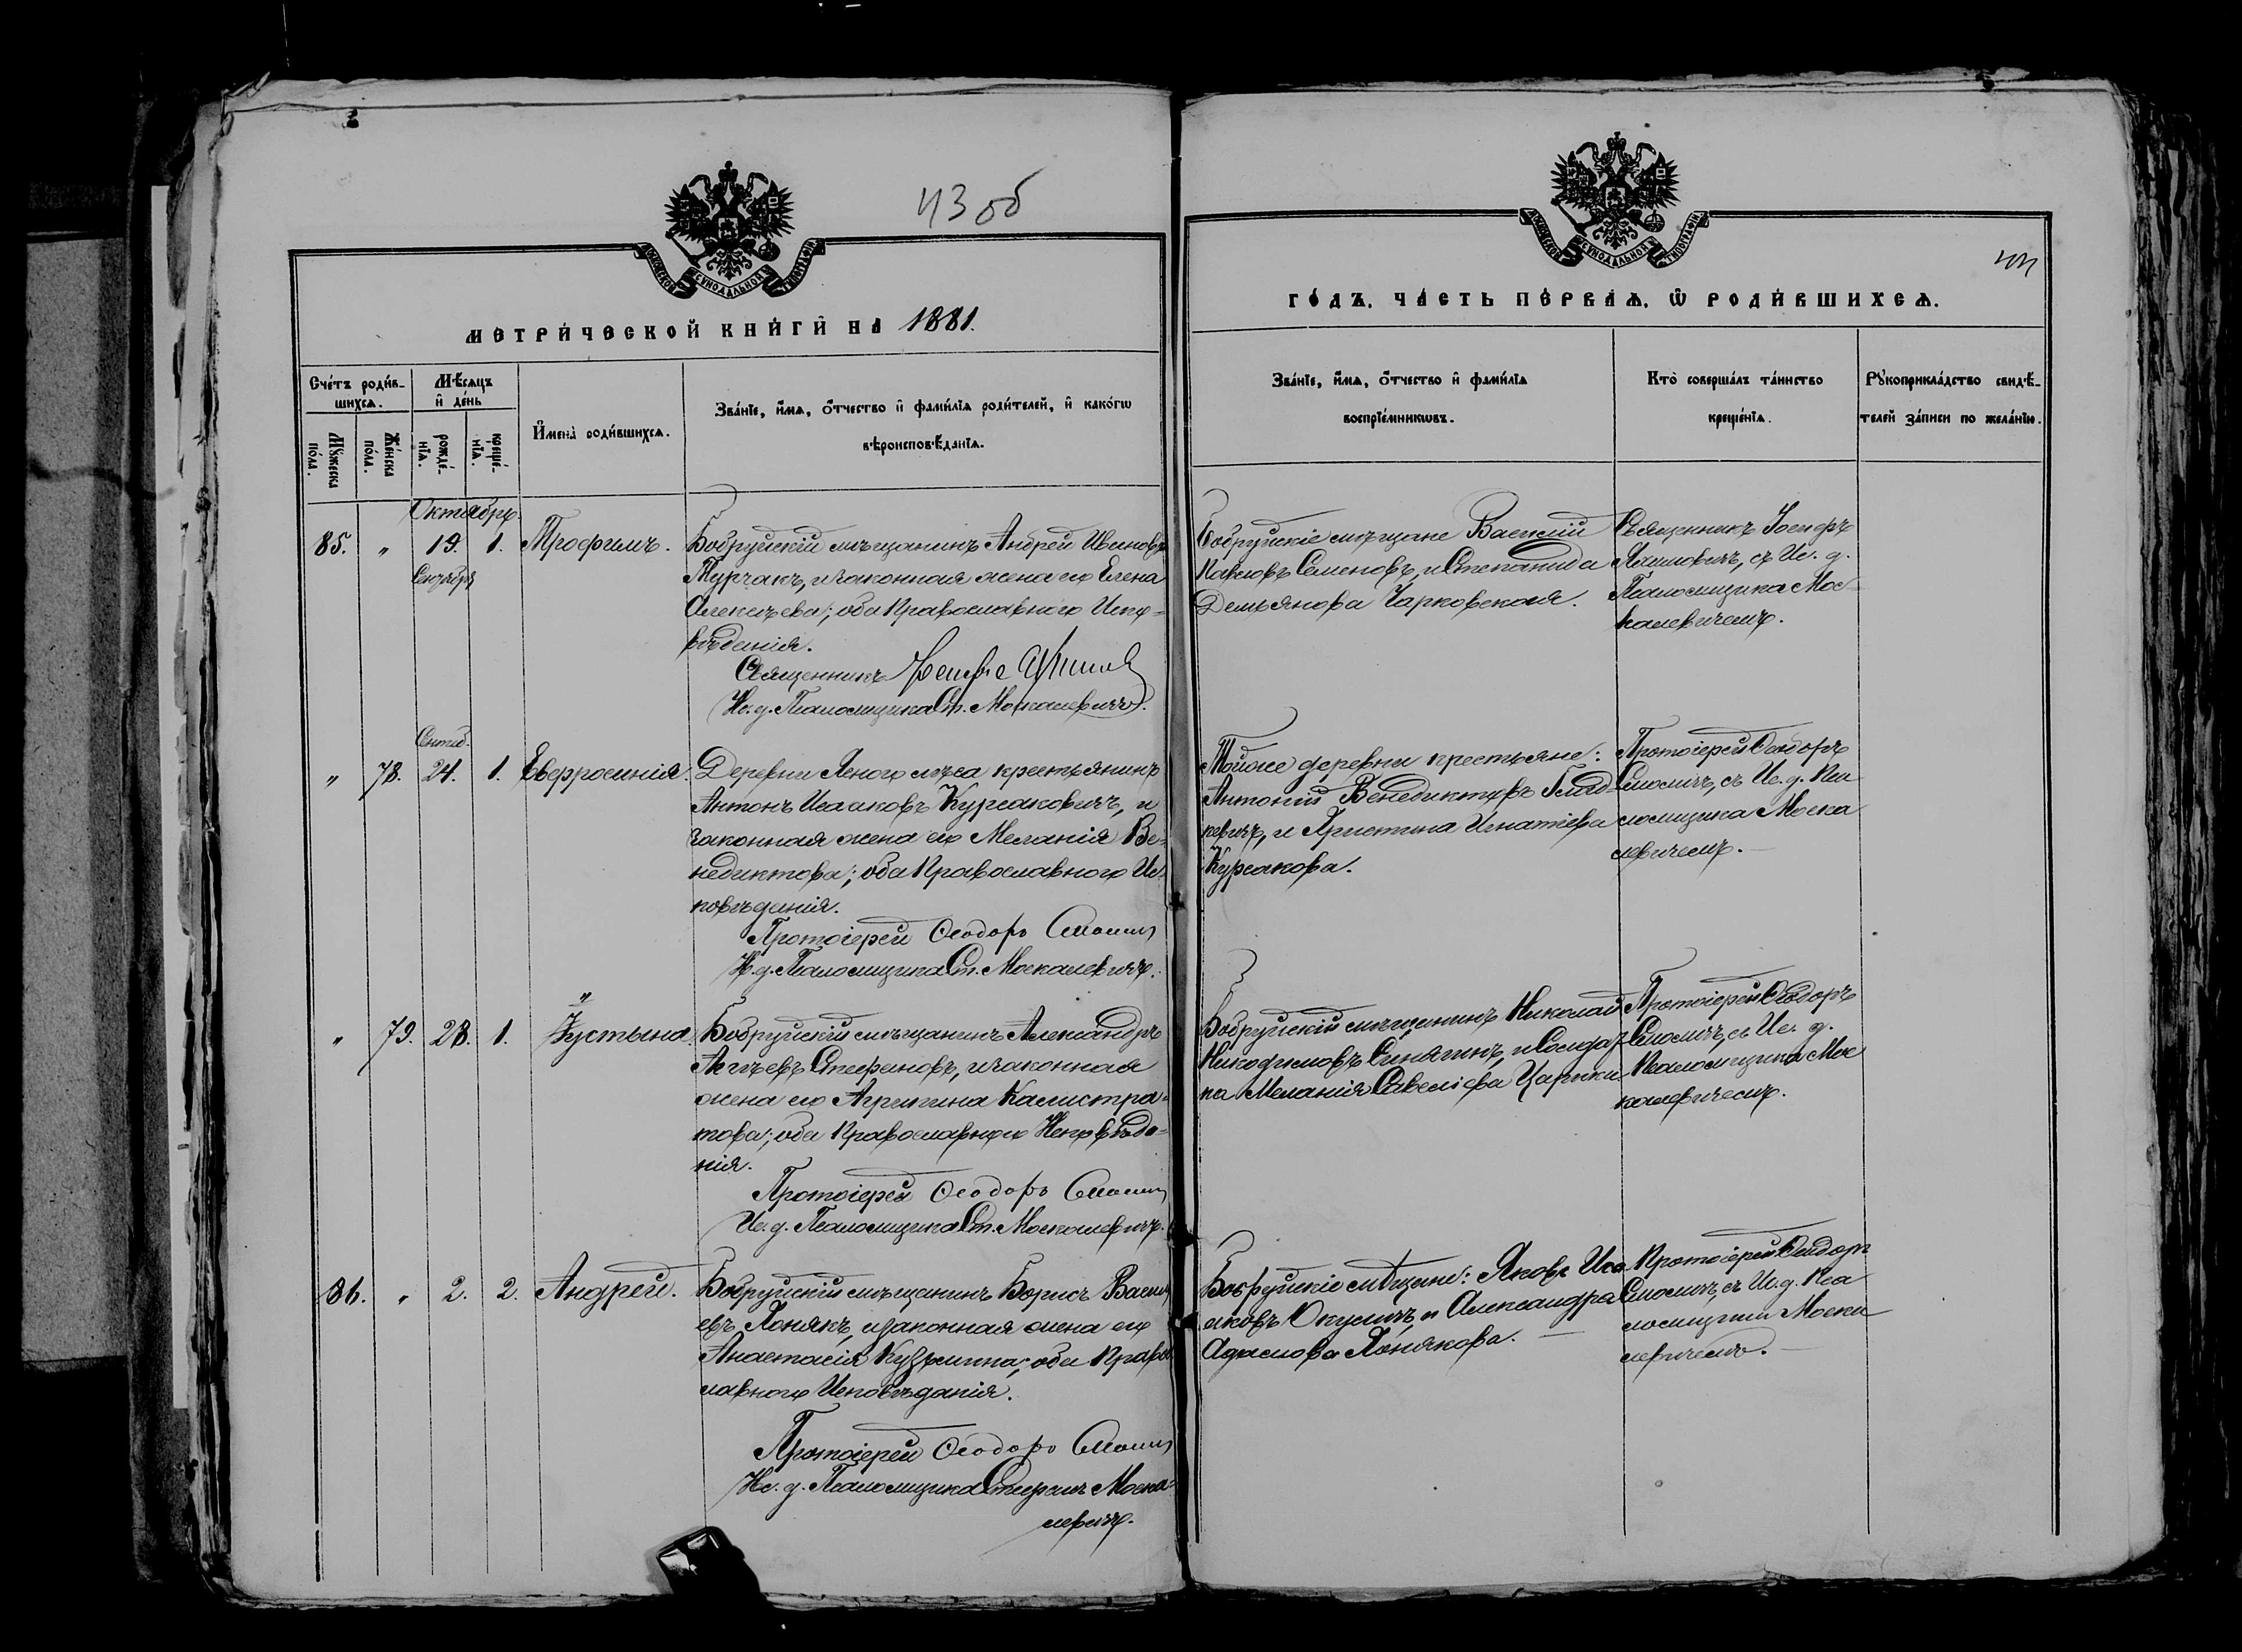 43 об
МОСКОВСКОЙ СѴНОДАЛЬНОЙ ТИПОГРАФІИ
МЕТРИ́ЧЕСКОЙ КНИ́ГИ НА 1881.
Сче́тъ роди́в-
шихсѧ.
Мѣ́сѧцъ
и҆ де́нь
И҆мена̀ роди́вшихсѧ.
Зва́нїе, и҆́мѧ, ѻ҆́тчество и҆ фами́лїѧ роди́телей, и҆ како́гѡ
вѣроисповѣ́данїѧ.
Мꙋ́жеска
по́ла.
Же́нска
по́ла.
рожде́-
нїѧ.
креще́-
нїѧ.
Октябрь.
85. " 19. 1. Трофимъ. Бобруйскій мѣщанинъ Андрей Ивановъ
Сентября
Турчакъ, и законная жена его Елена
Алексѣева; оба Православнаго Испо-
вѣданія.
Священникъ Іосифъ
Ис. д. Псаломщика Ст. Москалевичъ.
Сентяб.
" 78. 24. 1. Евфросинія. Деревни Яснаго лѣса крестьянинъ
Антонъ Исааковъ Курсаковичъ, и
законная жена его Меланія Ве-
недиктова; оба Православнаго Ис-
повѣданія.
Протоіерей Ѳеодоръ Смоличъ
И. д. Псаломщика Ст. Москалевичъ.
"
" 79. 28. 1. Іустина Бобруйскій мѣщанинъ Александръ
Аггѣевъ Стефановъ, и законная
жена его Агрипина Калистра-
това; оба Православнаго Исповѣда-
нія.
Протоіерей Ѳеодоръ Смоличъ
Ис. д. Псаломщика Ст. Москалевичъ.
86. " 2. 2. Андрей. Бобруйскій мѣщанинъ Борисъ Василь
евъ Хонякъ, и законная жена его
Анастасія Кузьмина; оба Право
славнаго Исповѣданія.
Протоіерей Ѳеодоръ Смоличъ
Ис. д. Псаломщика Стефанъ Моска-
левичъ.
МОСКОВСКОЙ СѴНОДАЛЬНОЙ ТИПОГРАФІИ
44
ГО́ДЪ, ЧА́СТЬ ПЕ́РВАѦ, Ѡ҆ РОДИ́ВШИХСѦ.
Зва́нїе, и҆́мѧ, ѻ҆́тчество и҆ фами́лїѧ
воспрїе́мникѡвъ.
Кто̀ соверша́лъ та́инство
креще́нїѧ.
Рꙋкоприкла́дство свидѣ́-
телей за́писи по жела́нїю.
Бобруйскіе мѣщане Василій
Павловъ Семеновъ, и Степанида
Демьянова Чарковская.
Священникъ Іосифъ
Яхимовичъ, съ Ис. д.
Псаломщика Мос-
калевичемъ.
Тойже деревни крестьяне:
Антоній Венедиктовъ Глад-
кевичъ, и Христина Игнатіева
Курсакова.
Протоіерей Ѳеодоръ
Смоличъ, съ Ис. д. Пса
ломщика Моска
левичемъ.
Бобруйскій мѣщанинъ Николай
Никодимовъ Синягинъ, и Солдат-
ка Меланія Савеліева Царики
Протоіерей Ѳеодоръ
Смоличъ, съ Ис. д.
Псаломщика Мос
калевичемъ.
Бобруйскіе мѣщане: Яковъ Иса
аковъ Окуличъ, и Александра
Адамова Хонякова.
Протоіерей Ѳеодоръ
Смоличъ, съ Ис. д. Пса
ломщика Моска
левичемъ.